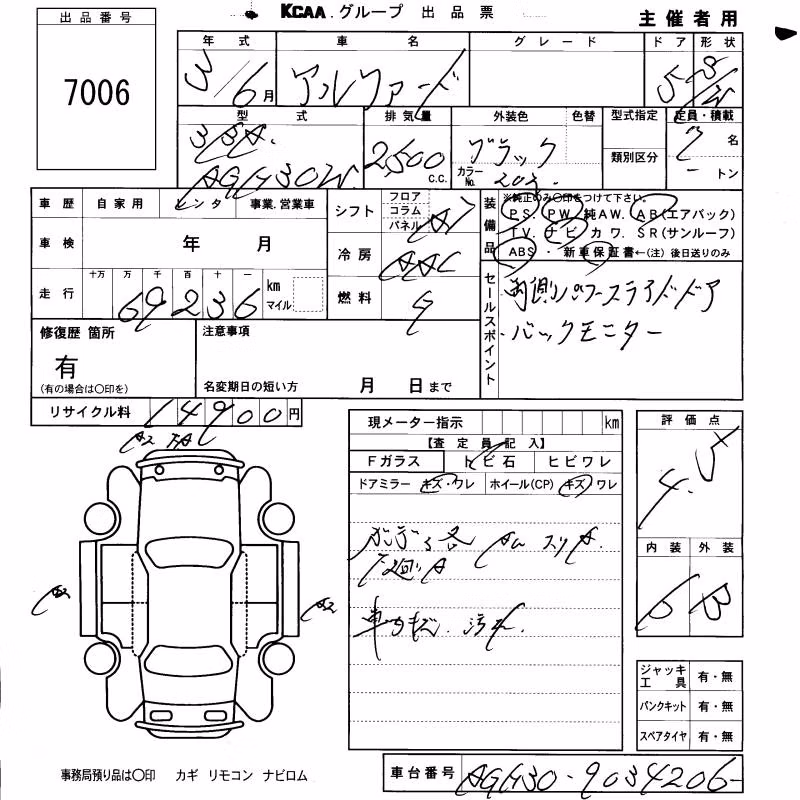 KCAA.グループ 出品票
主催者用
出品番号
7006
年式 車名 グレード ドア 形状
3/6月 アルファード 5 S/W
型式 排気量 外装色 色替 型式指定 定員・積載
3BA. 2,500 c.c. ブラック 類別区分 7名
AGH30W カラーNo. 202 ートン
車歴 自家用 レンタ 事業.営業車
シフト フロア コラム パネル AT
装備品 ※純正のみ〇印をつけて下さい。
PS. PW. 純AW. AB(エアバック)
TV. ナビ カワ. SR(サンルーフ)
ABS・新車保証書←(注)後日送りのみ
車検 年 月
冷房 AAC
走行 十万 万 千 百 十 一
69236 km マイル
燃料 G
セールスポイント
両側パワースライドドア
バックモニター
修復歴 箇所
有
(有の場合は〇印を)
注意事項
名変期日の短い方 月 日まで
リサイクル料 14900円
現メーター指示 km
【査定員記入】
Fガラス トビ石 ヒビワレ
ドアミラー キズ・ワレ ホイール(CP) キズ ワレ
評価点
4.5
内装 外装
B
A2
A2
A2
下廻りA
車内キズ.汚れ
ジャッキ工具 有・無
パンクキット 有・無
スペアタイヤ 有・無
事務局預り品は〇印 カギ リモコン ナビロム
車台番号 AGH30-9034206-